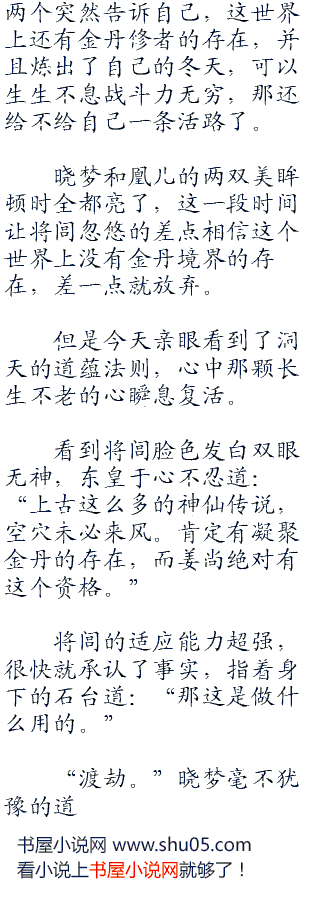 两个突然告诉自己，这世界
上还有金丹修者的存在，并
且炼出了自己的冬天，可以
生生不息战斗力无穷，那还
给不给自己一条活路了。
晓梦和凰儿的两双美眸
顿时全都亮了，这一段时间
让将闾忽悠的差点相信这个
世界上没有金丹境界的存
在，差一点就放弃。
但是今天亲眼看到了洞
天的道蕴法则，心中那颗长
生不老的心瞬息复活。
看到将闾脸色发白双眼
无神，东皇于心不忍道：
“上古这么多的神仙传说，
空穴未必来风。肯定有凝聚
金丹的存在，而姜尚绝对有
这个资格。”
将闾的适应能力超强，
很快就承认了事实，指着身
下的石台道：“那这是做什
么用的。”
“渡劫。”晓梦毫不犹
豫的道
书屋小说网 www.shu05.com
看小说上书屋小说网就够了！